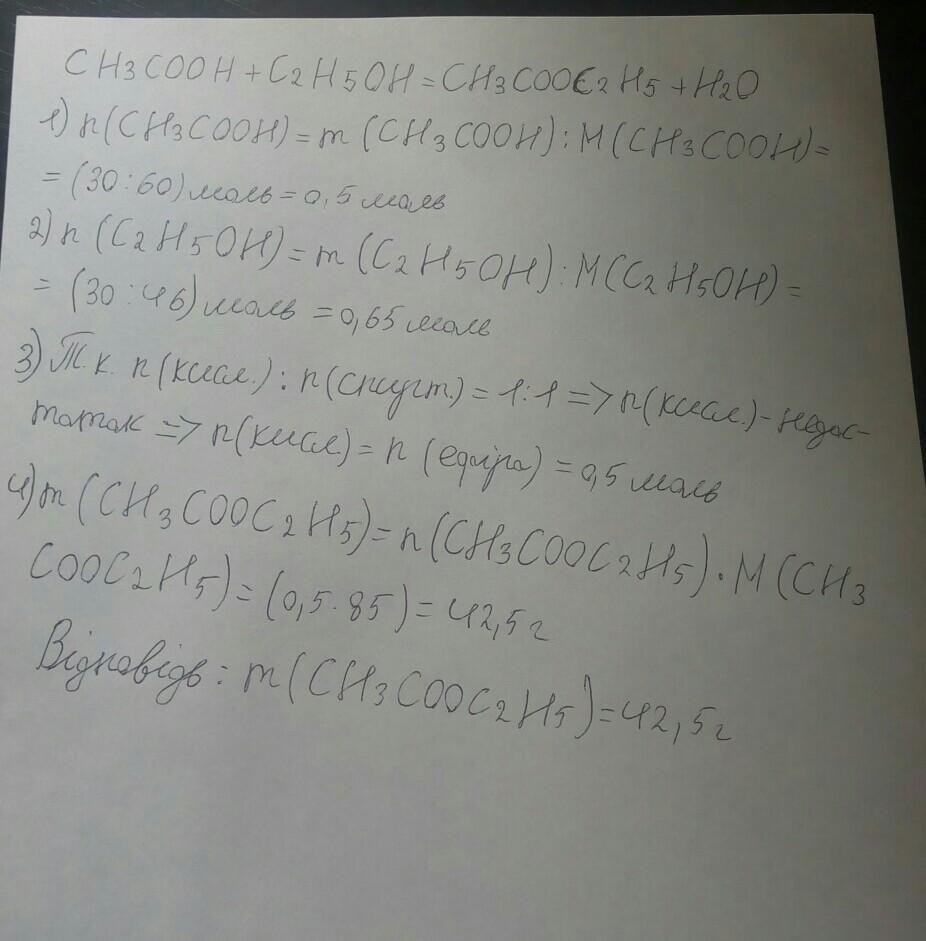 CH3COOH + C2H5OH = CH3COOC2H5 + H2O
1) n(CH3COOH) = m (CH3COOH) : M(CH3COOH) =
= (30 : 60) моль = 0,5 моль
2) n (C2H5OH) = m (C2H5OH) : M(C2H5OH) =
= (30 : 46) моль = 0,65 моль
3) Т.к. n(кисл.) : n(спирт.) = 1:1 => n(кисл.) - недос-
таток => n(кисл) = n (ефіра) = 0,5 моль
4) m (CH3COOC2H5) = n(CH3COOC2H5) · M(CH3
COOC2H5) = (0,5 · 85) = 42,5 г
Відповідь : m (CH3COOC2H5) = 42,5 г